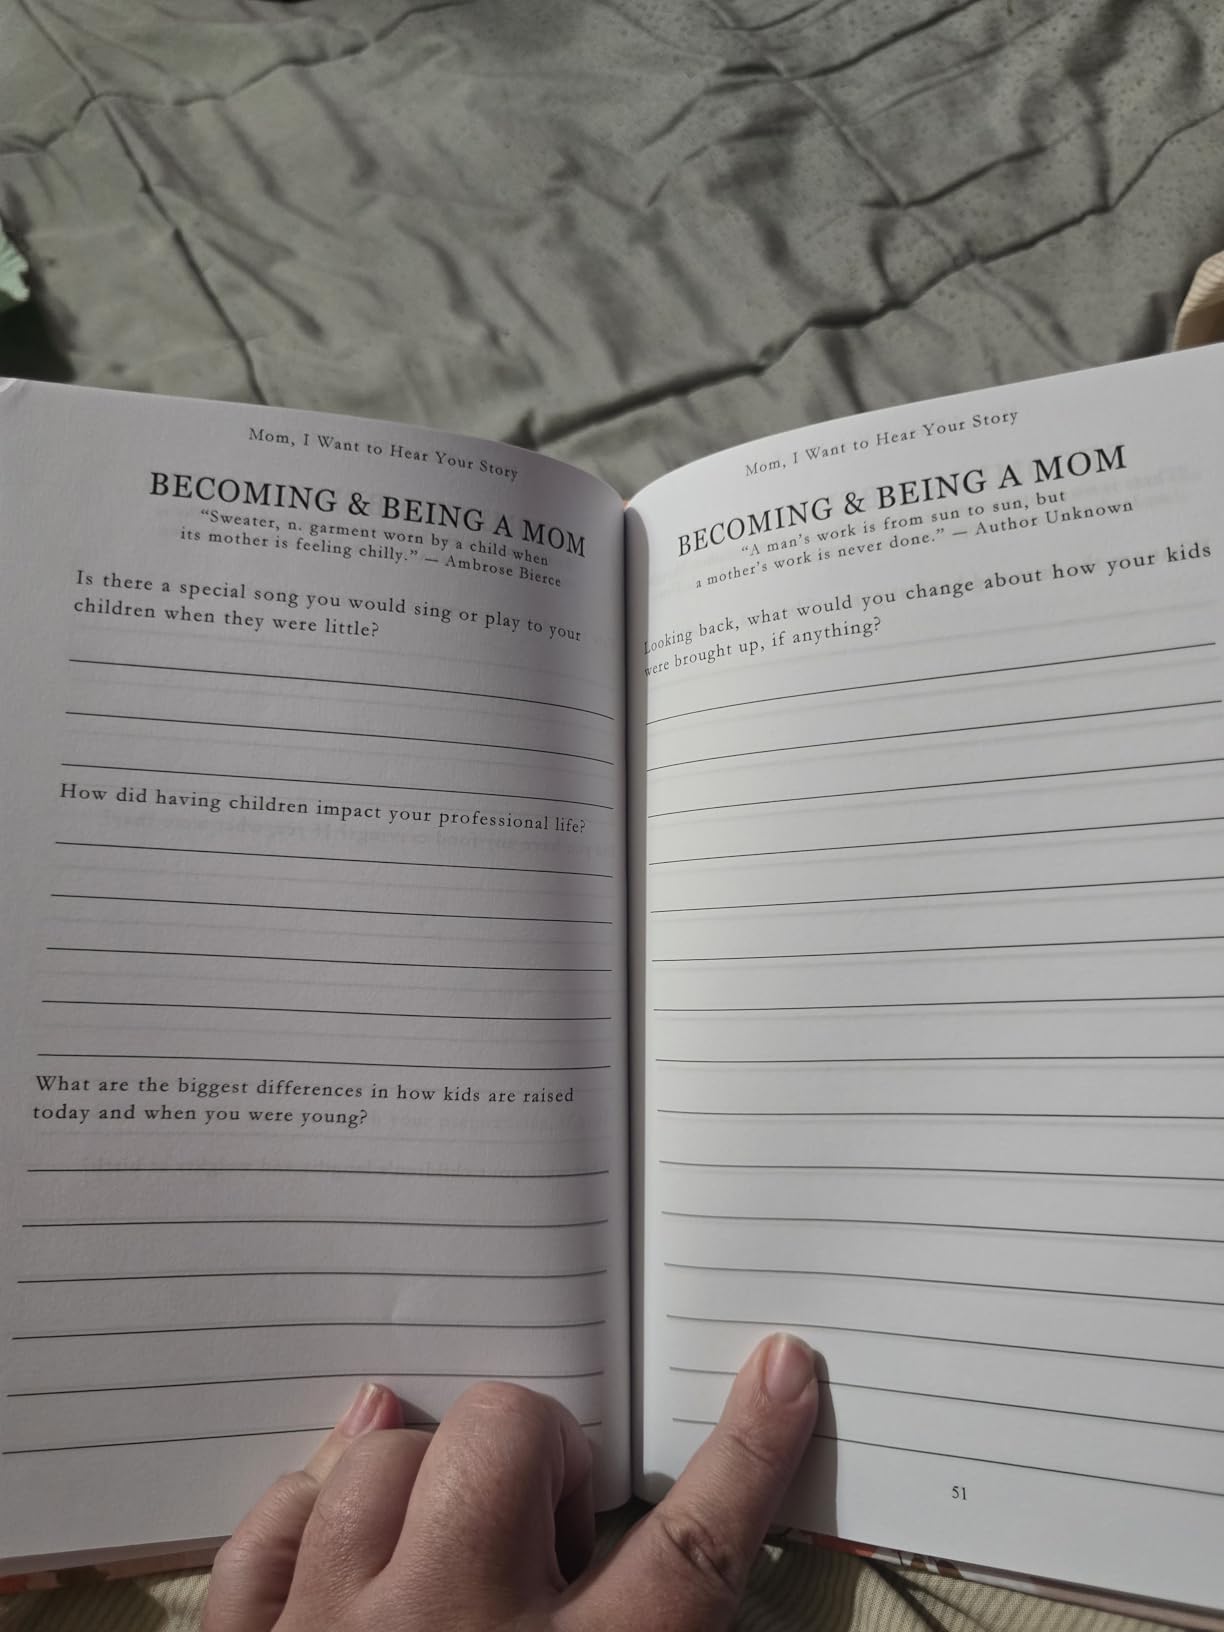 Mom, I Want to Hear Your Story
BECOMING & BEING A MOM
“Sweater, n. garment worn by a child when
its mother is feeling chilly.” — Ambrose Bierce
Is there a special song you would sing or play to your
children when they were little?
How did having children impact your professional life?
What are the biggest differences in how kids are raised
today and when you were young?
Mom, I Want to Hear Your Story
BECOMING & BEING A MOM
“A man’s work is from sun to sun, but
a mother’s work is never done.” — Author Unknown
Looking back, what would you change about how your kids
were brought up, if anything?
51